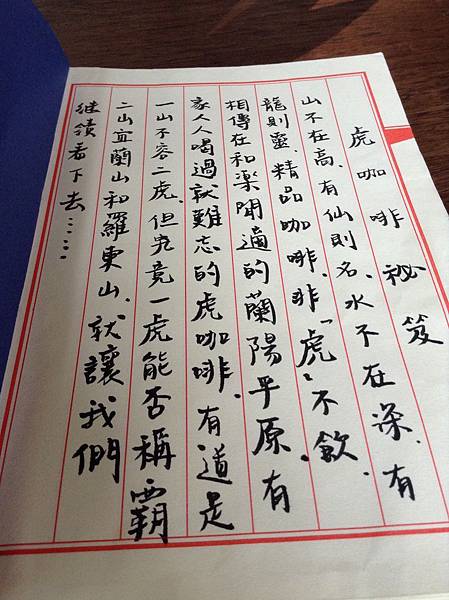 虎咖啡祕笈
山不在高、有仙則名、水不在深、有
龍則靈、精品咖啡、非「虎」不飲、
相傳在和樂閒適的蘭陽平原、有
家人人喝過就難忘的虎咖啡、有道是
一山不容二虎、但究竟一虎能否稱霸
二山宜蘭山和羅東山、就讓我們
繼續看下去……